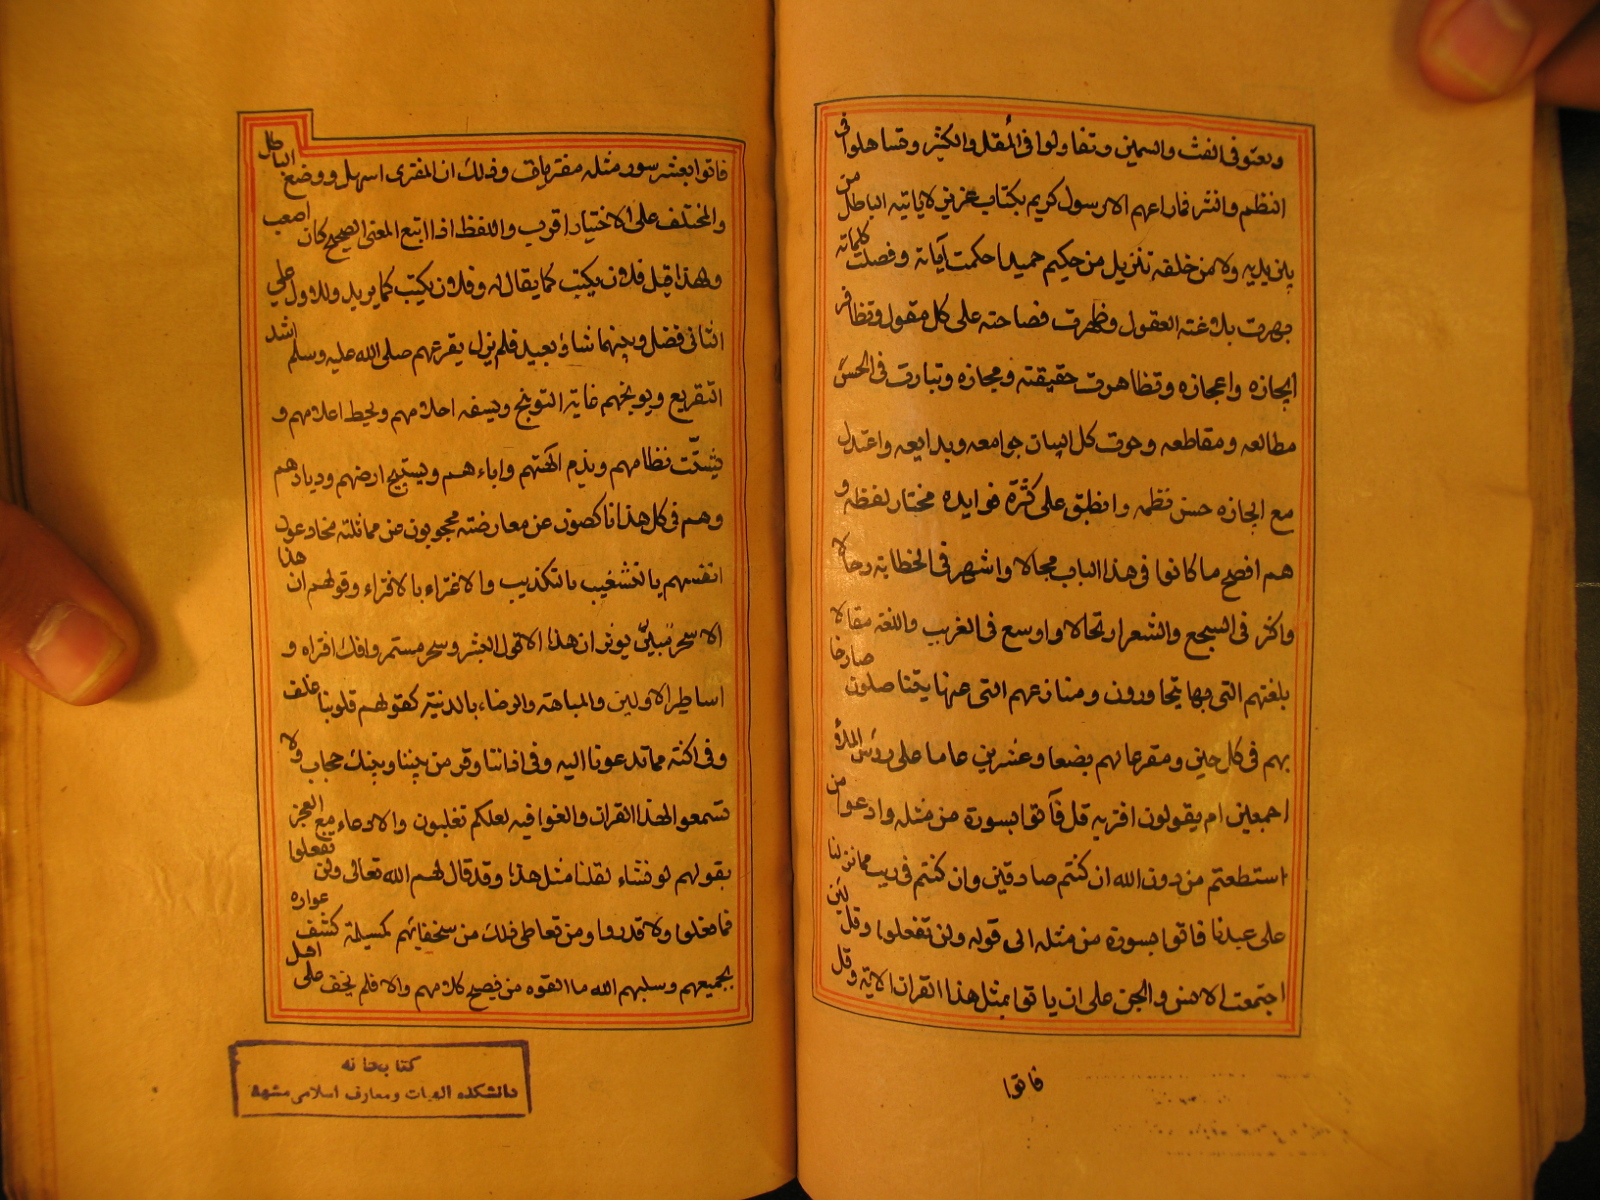 وبعتو فى الغث والسمين وتقاولوا فى المقل والكثر وتساهلوا فى
النظم والنثر فما راعهم الا رسول كريم بكتاب عزيز لا ياتيه الباطل من
بين يديه ولا من خلفه تنزيل من حكيم حميد احكمت آياته وفصلت كلماته
بهرت بلاغته العقول وظهرت فصاحته على كل مقول وتظافر
ايجازه واعجازه وتظاهرت حقيقته ومجازه وتبارت فى الحسن
مطالعه ومقاطعه وحوت كل البيان جوامعه وبدايعه واعتدل
مع ايجازه حسن نظمه وانطبق على كثرة فوايده مختار لفظه و
هم افصح ما كانوا فى هذا الباب مجالا واشهر فى الخطابة رجالا
واكثر فى السجع والشعر ارتجالا واوسع فى الغريب واللغة مقالا
بلغتهم التى بها يتحاورون ومنازعهم التى عنها يتناصلون صارخا
بهم فى كل حين ومقرعا لهم بضعا وعشرين عاما على رؤس الملاؤ
اجمعين ام يقولون افتريه قل فآتوا بسورة من مثله وادعوا من
استطعتم من دون الله ان كنتم صادقين وان كنتم فى ريب مما نزلنا
على عبدنا فاتوا بسورة من مثله الى قوله ولن تفعلوا وقل لئن
اجتمعت الانس والجن على ان ياتوا بمثل هذا القران الاية وقل
فاتوا
فاتوا بعشر سور مثله مفتريات وذلك ان المفترى اسهل ووضع الباطل
والمختلف على الاختيار اقرب واللفظ اذا اتبع المعنى الصحيح كان اصعب
ولهذا قيل فلان يكتب كما يقال له وفلان يكتب كما يريد وللاول على
الثانى فضل وبينهما شاؤ بعيد فلم يزل يقرعهم صلى الله عليه وسلم اشد
التقريع ويوبخهم غاية التوبيخ ويسفه احلامهم ويحط اعلامهم و
يشتّت نظامهم ويذم الهتهم واباءهم ويستبيح ارضهم وديارهم
وهم فى كل هذا ناكصون عن معارضته محجوبون عن مماثلته مخادعون
انفسهم بالتشغيب بالتكذيب والاغتراء بالافتراء وقولهم ان هذا
الا سحر مبين يوثر ان هذا الا قول البشر وسحر مستمر وافك افتراه و
اساطير الاولين والمباهتة والرضاء بالدنية كقولهم قلوبنا غلف
وفى اكنة مما تدعونا اليه وفى اذاننا وقر من بيننا وبينك حجاب ولا
تسمعوا لهذا القران والغوا فيه لعلكم تغلبون والادعاء مع العجز
بقولهم لو نشاء لقلنا مثل هذا وقد قال لهم الله تعالى ولن تفعلوا
فما فعلوا ولا قدروا ومن تعاطى ذلك من سخفائهم كمسيلمة كشف عواره
لجميعهم وسلبهم الله ما الفوه من فصيح كلامهم والا فلم يخف على اهل
كتابخانه
دانشكده الهيات ومعارف اسلامى مشهد